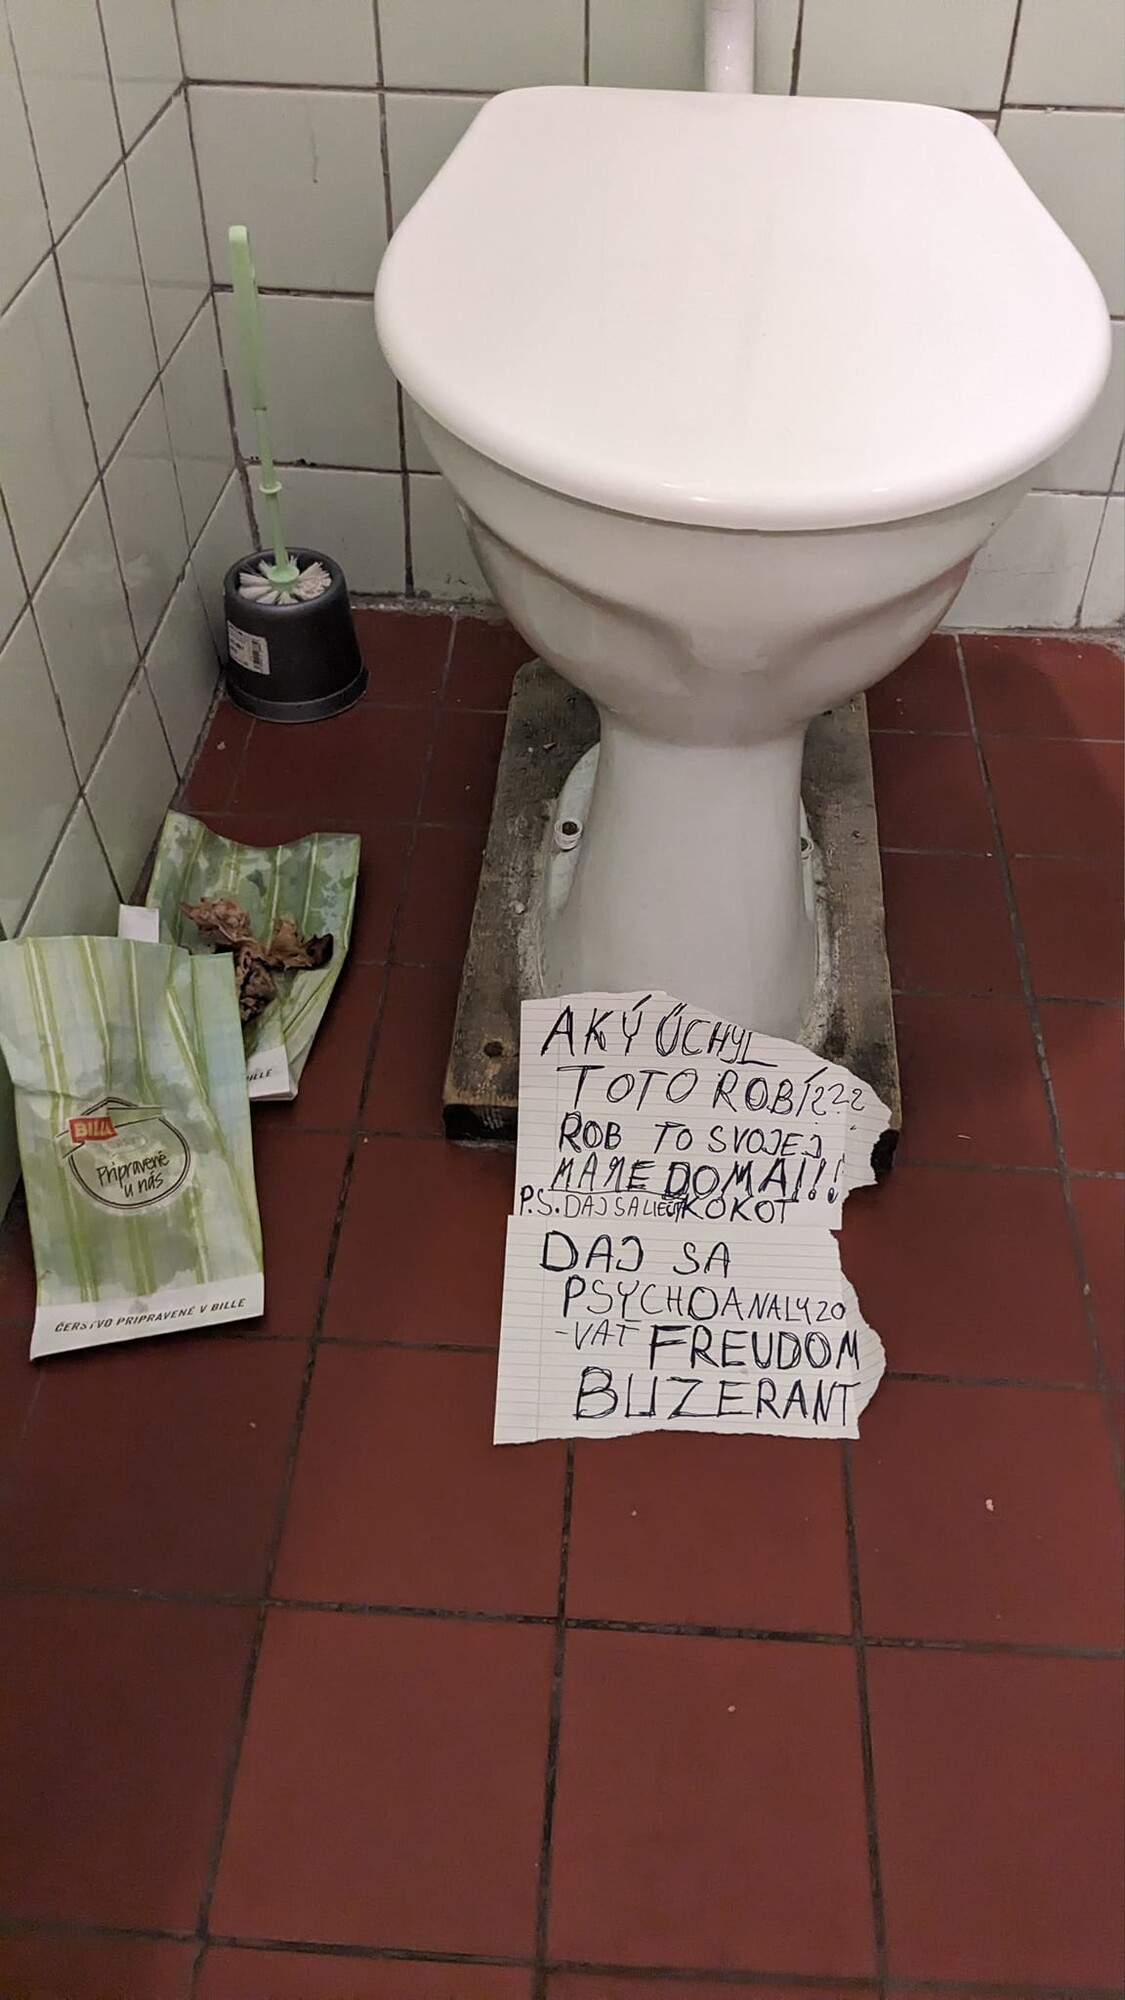 AKÝ ÚCHYL
TOTO ROBÍ???
ROB TO SVOJEJ
MAME DOMA!!!
P.S. DAJ SA LIEČIŤ KOKOT
DAJ SA
PSYCHOANALYZO
-VAŤ FREUDOM
BUZERANT
BILLA
Pripravené
u nás
ČERSTVO PRIPRAVENÉ V BILLE
BILLE